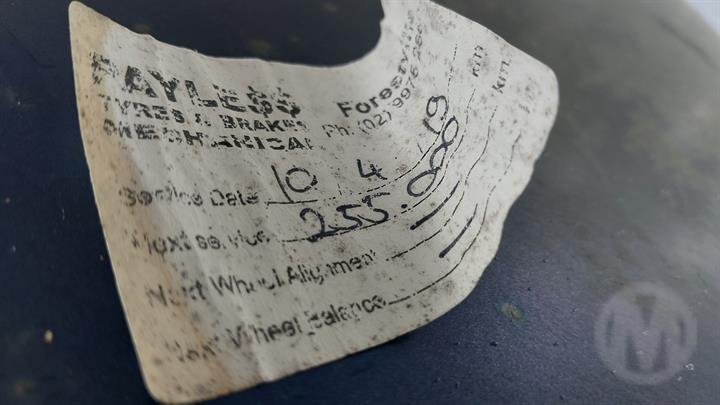 PAYLESS
TYRES & BRAKES
MECHANICAL
Forestville
Ph: (02) 9975
Service Date 10 4 19
Next service 255.000 km
Next Wheel Alignment km
Next Wheel Balance
M